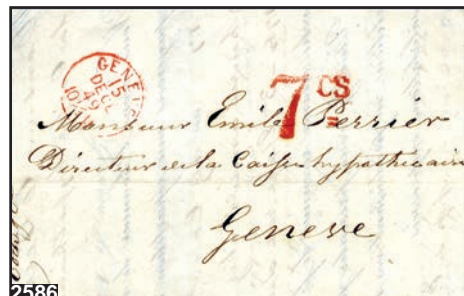 GENEVE
15
DEC
49
10
7 CS
Monsieur Emile Perrier
Directeur de la Caisse hypothecaire
Geneve
2586